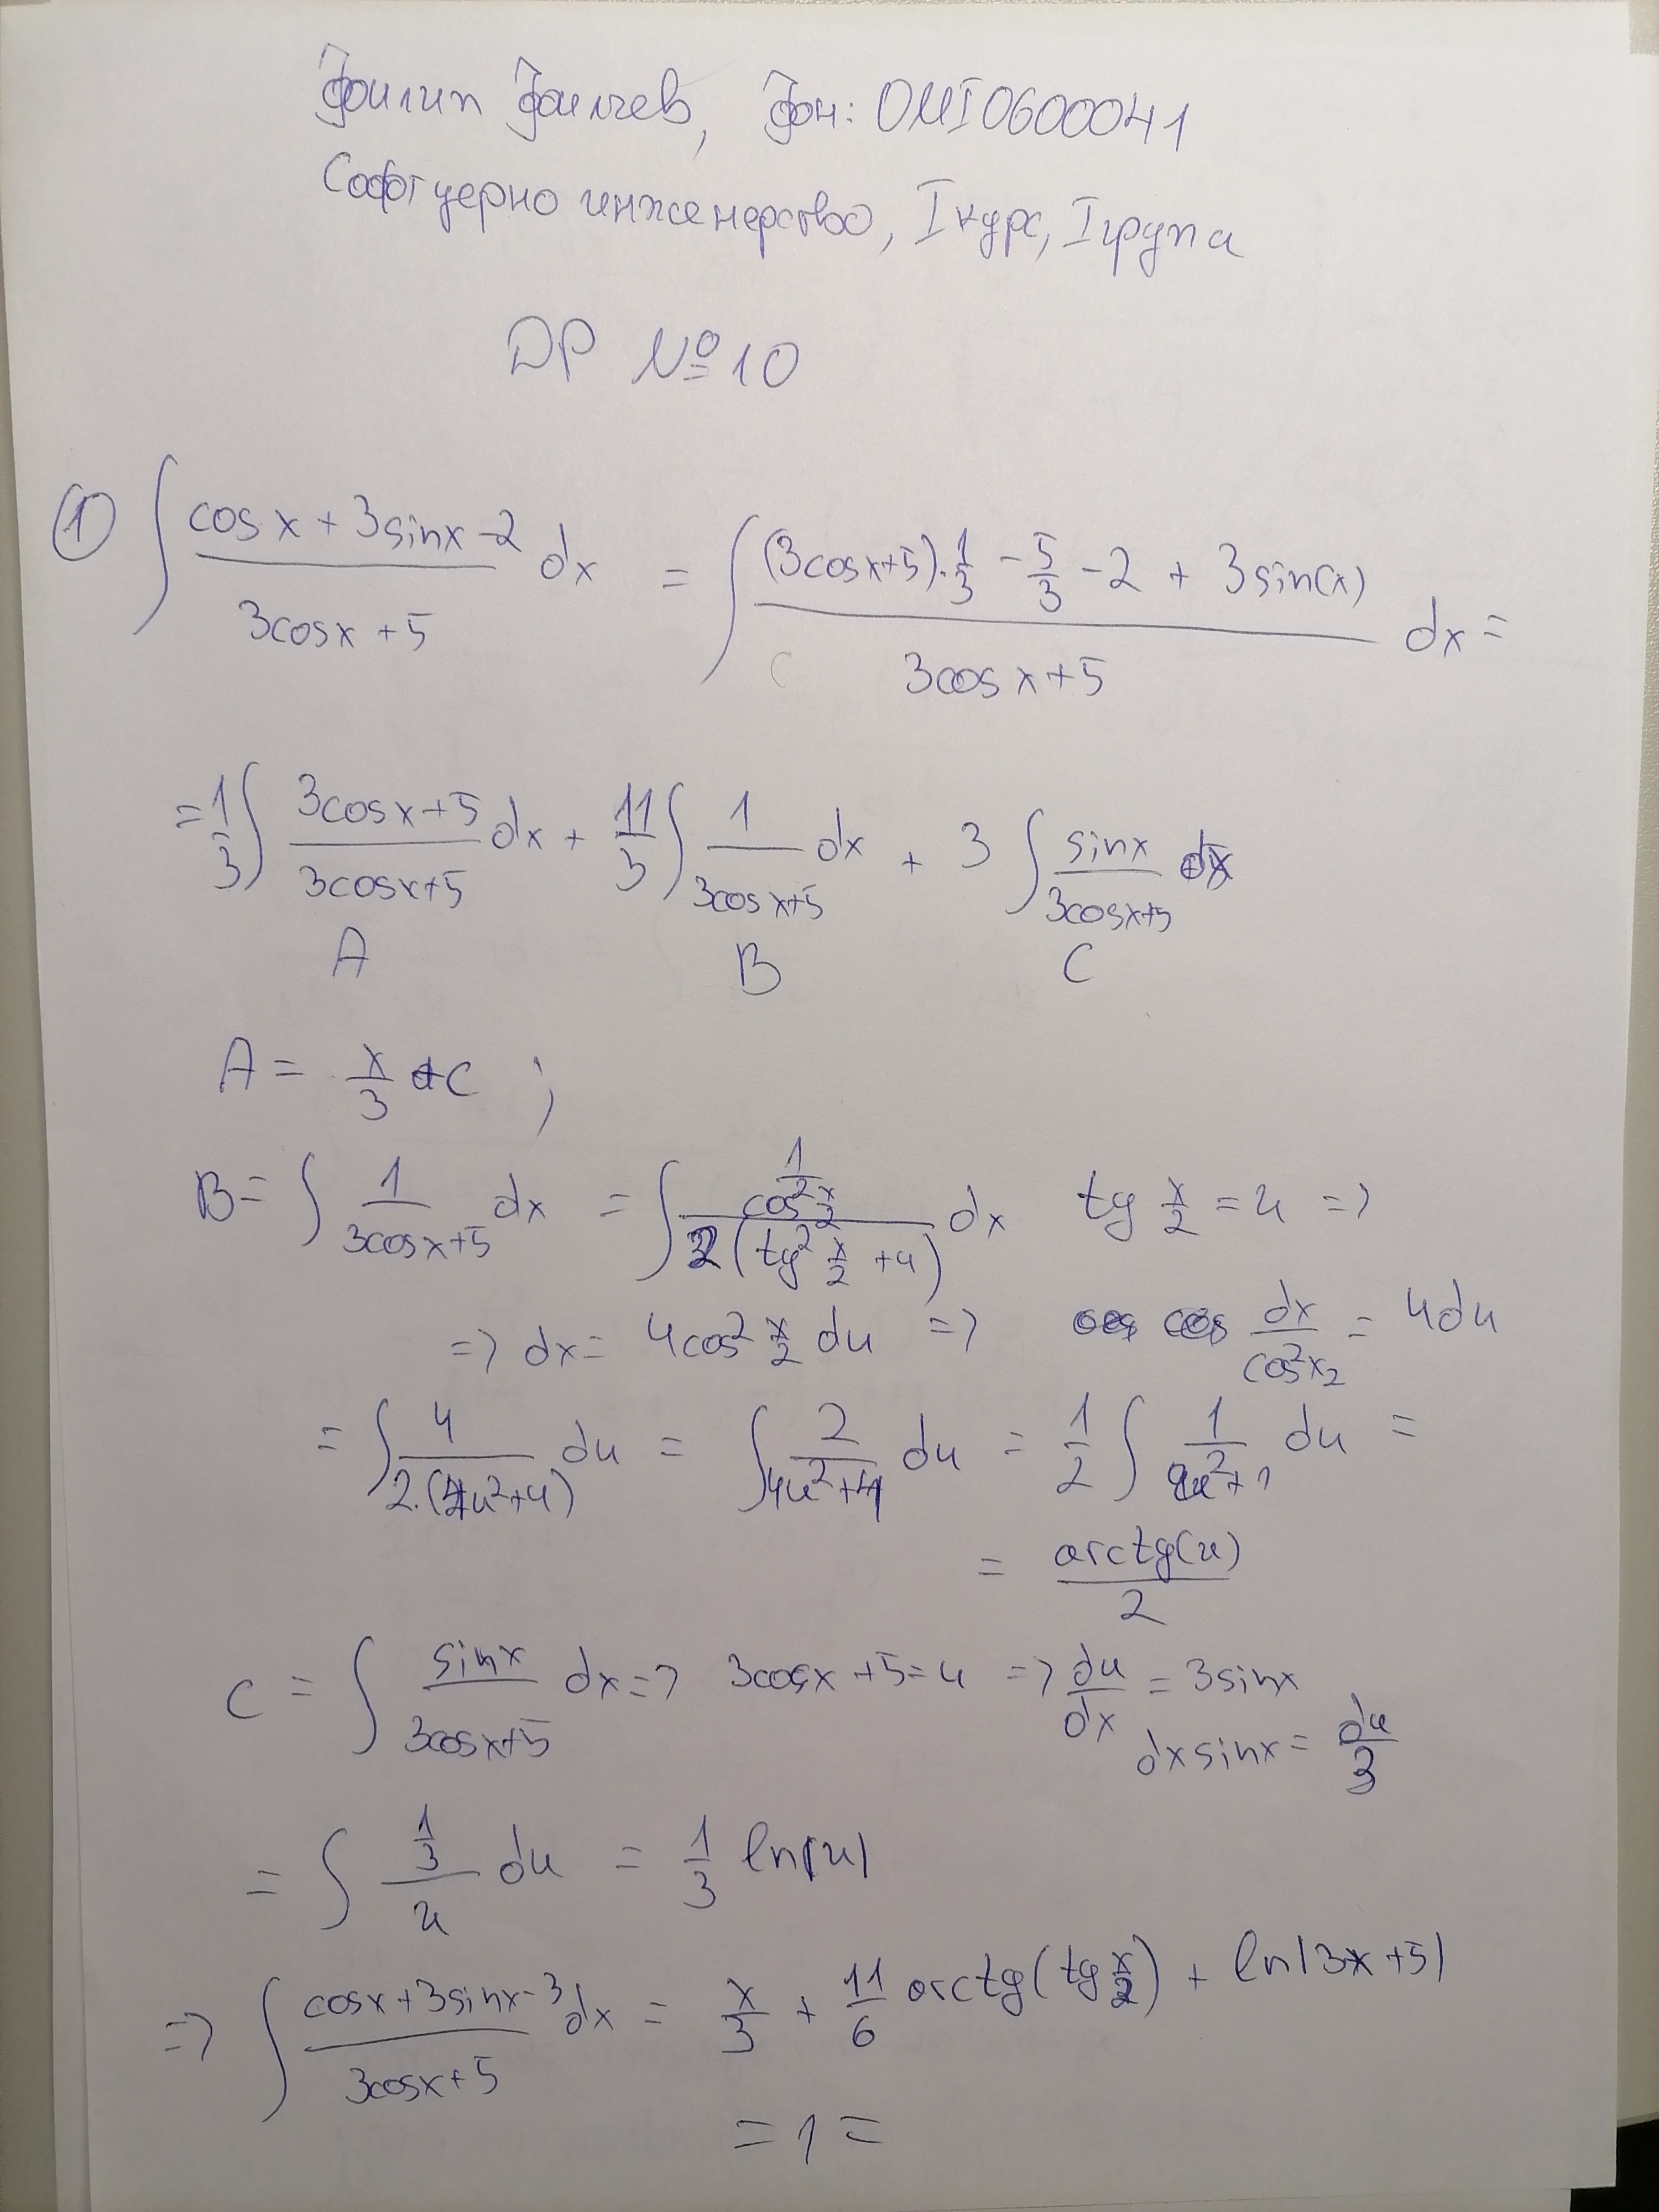 Филип Филчев, Фн: 0MI0600041
Софтуерно инженерство, I курс, I група
ДР №10
① ∫ (cosx + 3sinx - 2)/(3cosx + 5) dx = ∫ ((3cosx+5).1/3 - 5/3 - 2 + 3sin(x))/(3cosx+5) dx =
= 1/3 ∫ (3cosx+5)/(3cosx+5) dx + 11/3 ∫ 1/(3cosx+5) dx + 3 ∫ sinx/(3cosx+5) dx
A B C
A = x/3 + C ;
B = ∫ 1/(3cosx+5) dx = ∫ (1/cos² x/2)/(2(tg² x/2 + 4)) dx tg x/2 = u =>
=> dx = 4cos² x/2 du => dx/cos² x2 = 4du
= ∫ 4/(2.(4u²+4)) du = ∫ 2/(4u²+4) du = 1/2 ∫ 1/(u²+1) du =
= arctg(u)/2
C = ∫ sinx/(3cosx+5) dx => 3cosx + 5 = u => du/dx = 3sinx
dx sinx = du/3
= ∫ (1/3)/u du = 1/3 ln|u|
=> ∫ (cosx + 3sinx - 3)/(3cosx + 5) dx = x/3 + 11/6 arctg(tg x/2) + ln|3x+5|
= 1 =